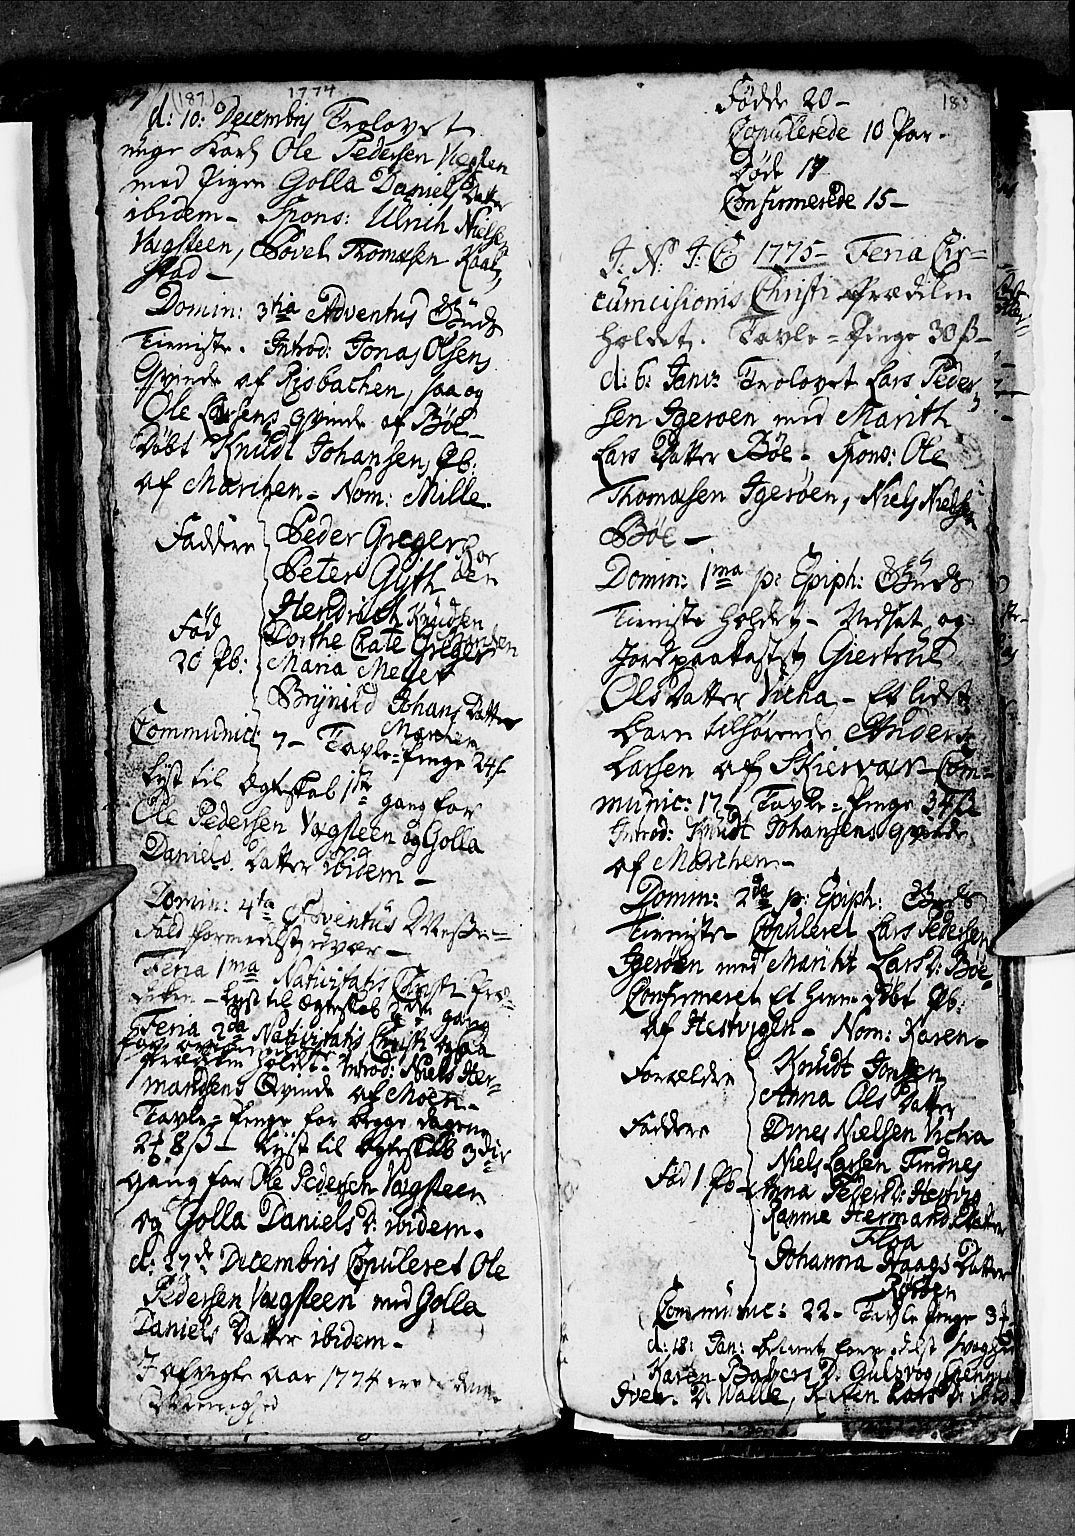 (187)
1774
d: 10: Decembris Trolovet
unge Karl Ole Pedersen Vægsteen
med Pigen Golla Daniels Datter
ibidem - Spons: Ulrich Nielsen
Vægsteen, Povel Thomæsen Kaal-
stad -
Domin: 3tia Adventus Guds
Tieniste. Introd: Jonas Olsens
Qvinde af Risbachen, saa og
Ole Larsens Qvinde af Böe -
Döbt Knudt Johansens Pb:
af Marchen - Nom: Mille.
Faddere
Peder Greger
Peter Gyth
Hendrich Knudsen
Död
20 Pb:
Dorthe Cate Greger
Maria Meyer
Brynild Johans Datter
Marchen
Communic: 7 - Tavle-Penge 24 ß
Lyst til Ægteskab 1ste gang for
Ole Pedersen Vægsteen og Golla
Daniels Datter ibidem -
Domin: 4ta Adventus Messe-
Fald formedelst uvær -
Feria 1ma Nativitatis Christi Præ-
diken - Lyst til Ægteskab 2den gang
Feria 2da Nativitatis Christi
Prædiken holdet - Introd: Niels Her-
mandsens Qvinde af Moen -
Tavle-Penge for begge dagene
8 ß - Lyst til Ægteskab 3die
gang for Ole Pedersen Vægsteen
og Golla Daniels D: ibidem.
d: 27de Decembris Copuleret Ole
Pedersen Vægsteen med Golla
Daniels Datter ibidem -
I afvigte Aar 1774 ere
Menighed
188
Födde 20 -
Copulerede 10 Par -
Döde 17
Confirmerede 15 -
I. N. J. C 1775 - Feria Cir-
cumcisionis Christi Prædiken
holdet. Tavle-Penge 30 ß -
d: 6: Janv: Trolovet Lars Peder-
sen Igeröen med Marith
Lars Datter Böe -, Spons: Ole
Thomæsen Igeröen, Niels Nielsen
Böe -
Domin: 1ma p: Epiph: Guds
Tieniste holdet - Udsat og
Jordpaakastet Giertrud
Ols Datter Vicha - Et lidet
Barn tilhörende Anders
Larsen af Skiervær - Com-
munic: 17 Tavle-Penge 34 ß
Introd: Knudt Johansens Qvinde
af Marchen -
Domin: 2da p: Epiph: Guds
Tieniste - Copuleret Lars Pedersen
Igeröen med Marith Lars D: Böe
Confirmeret Et hiemme Döbt Pb:
af Hestvigen - Nom: Karen -
Forældre
Knudt Jonsen
Anna Ols Datter
Faddere
Dines Nielsen Vicha
Niels Larsen Tindnes
Död 1 Pb
Anna Peders D: Hestvig
Rannie Hermands Datter
Floa
Johanna Haags Datter
Communic: 22 - Tavle Penge 3
d: 18: Jan:
Karen D: Gulsvog,
Iver D: Walle, Karen Lars D: